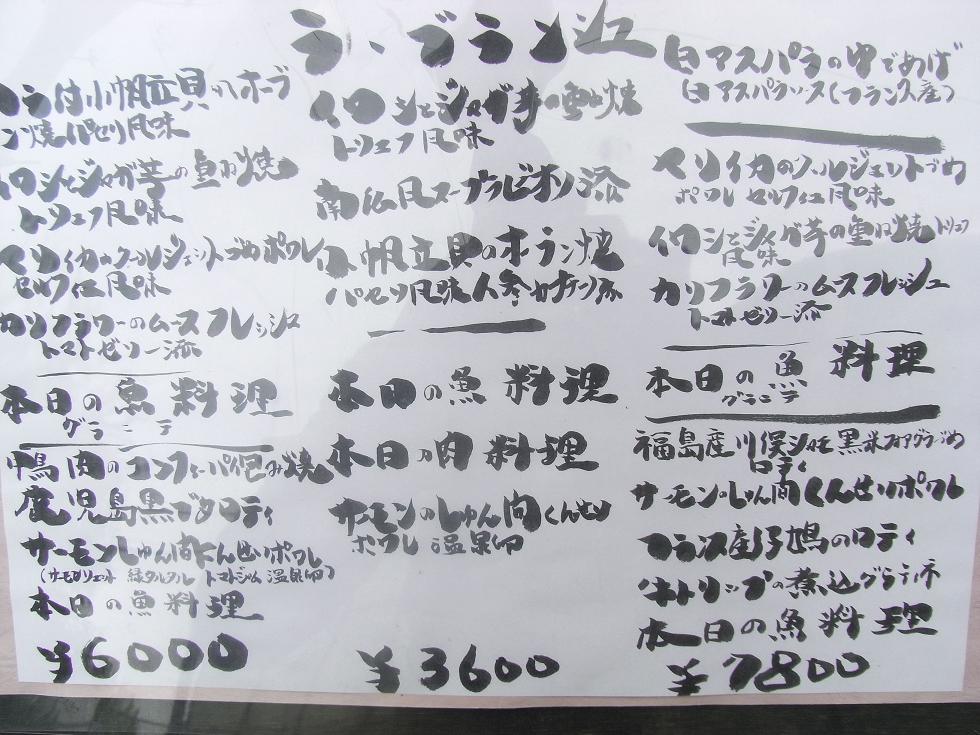 ラ・ブランシュ
コラ付小帆立貝のホーラ
ン焼パセリ風味
イワシとジャガ芋の重ね焼
トリュフ風味
ヤリイカのクールジェットづめポワレ
セルフィユ風味
カリフラワーのムースフレッシュ
トマトゼリー添
本日の魚料理
グラニテ
鴨肉のコンフィーパイ包み焼
鹿児島黒ブタロティ
サーモンしゅん間くんせいポワレ
緑タルタル トマトジャム 温泉卵)
本日の魚料理
¥6000
イワシとジャガ芋の重ね焼
トリュフ風味
南仏風スープラビオリ添
小帆立貝のホーラン焼
パセリ風味人参
本日の魚料理
本日の肉料理
サーモンのしゅん間くんせい
ポワレ 温泉卵
¥3600
白アスパラのゆであげ
白アスパラソース(フランス産)
ヤリイカのクールジェットづめ
ポワレ セルフィユ風味
イワシとジャガ芋の重ね焼トリュフ
風味
カリフラワーのムースフレッシュ
トマトゼリー添
本日の魚料理
グラニテ
福島産川俣シャモ黒米フォアグラづめ
ロティ
サーモンのしゅん間くんせいポワレ
フランス産仔鳩のロティ
牛トリップの煮込グラティネ
本日の魚料理
¥7800